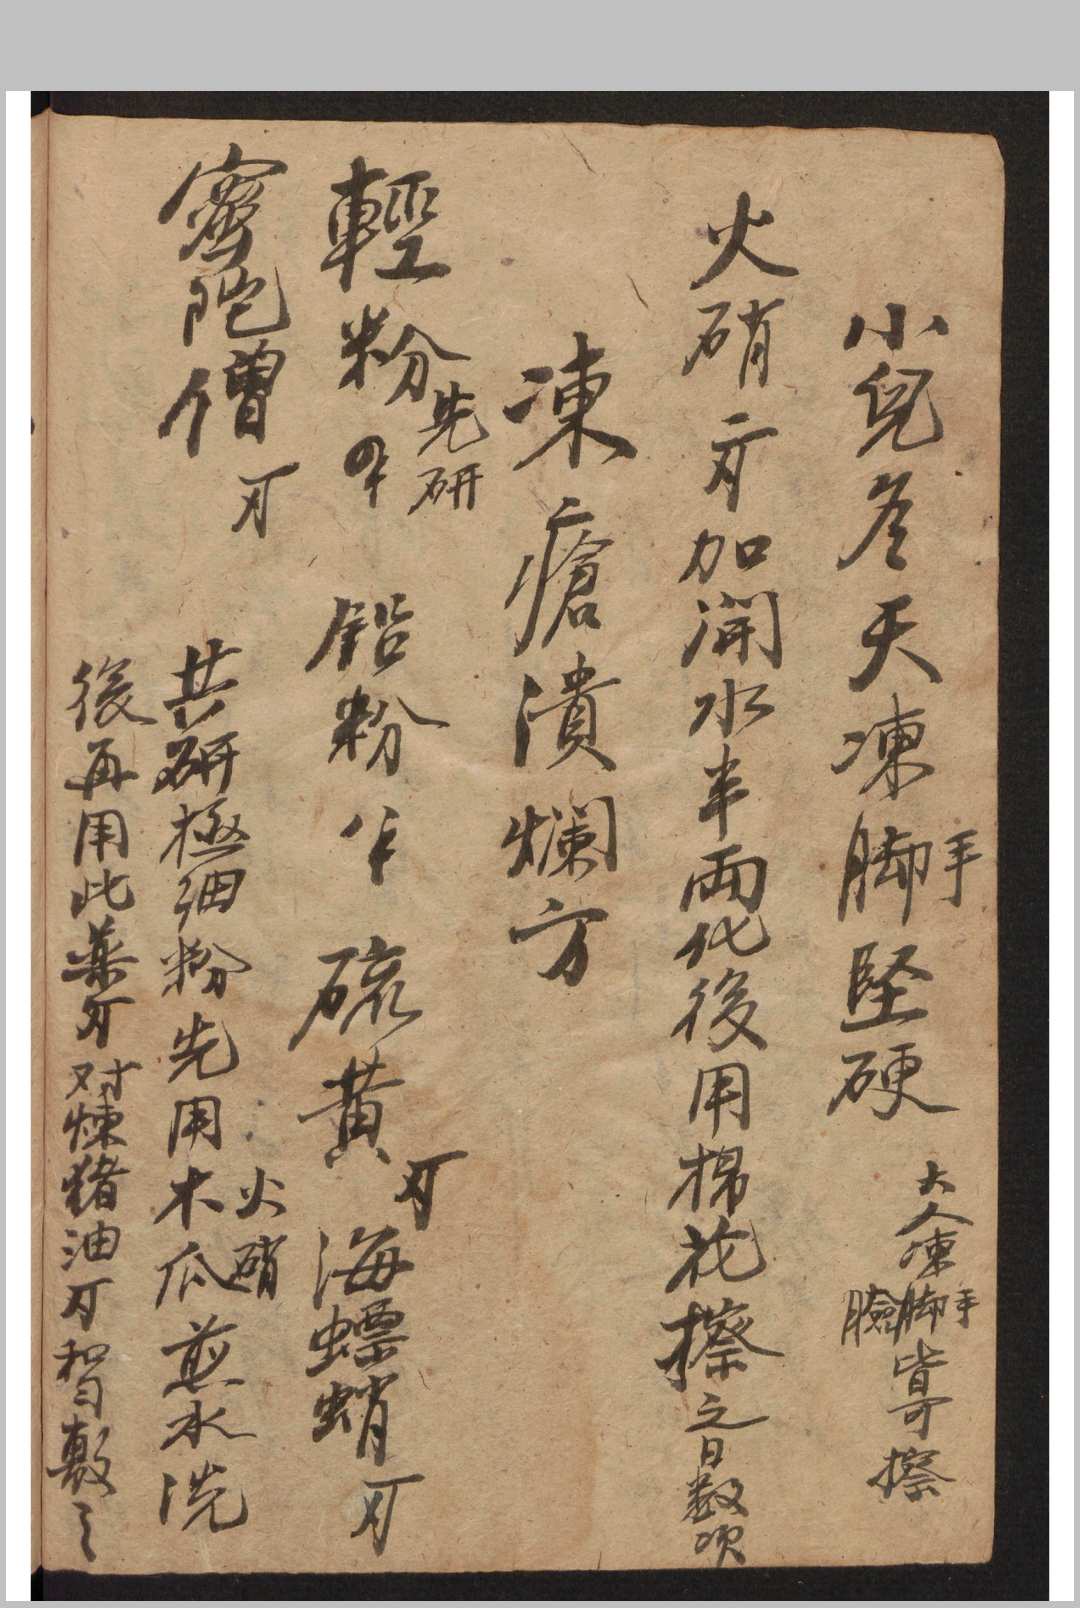 小兒冬天凍手脚堅硬
大人凍手脚臉皆可擦
火硝 加開水半兩化後用棉花擦之日數次
凍瘡潰爛方
輕粉先研 鉛粉 硫黃 海螵蛸
密陀僧 共研極細粉先用木瓜火硝煎水洗
後再用此藥 对煉豬油 和勻敷之